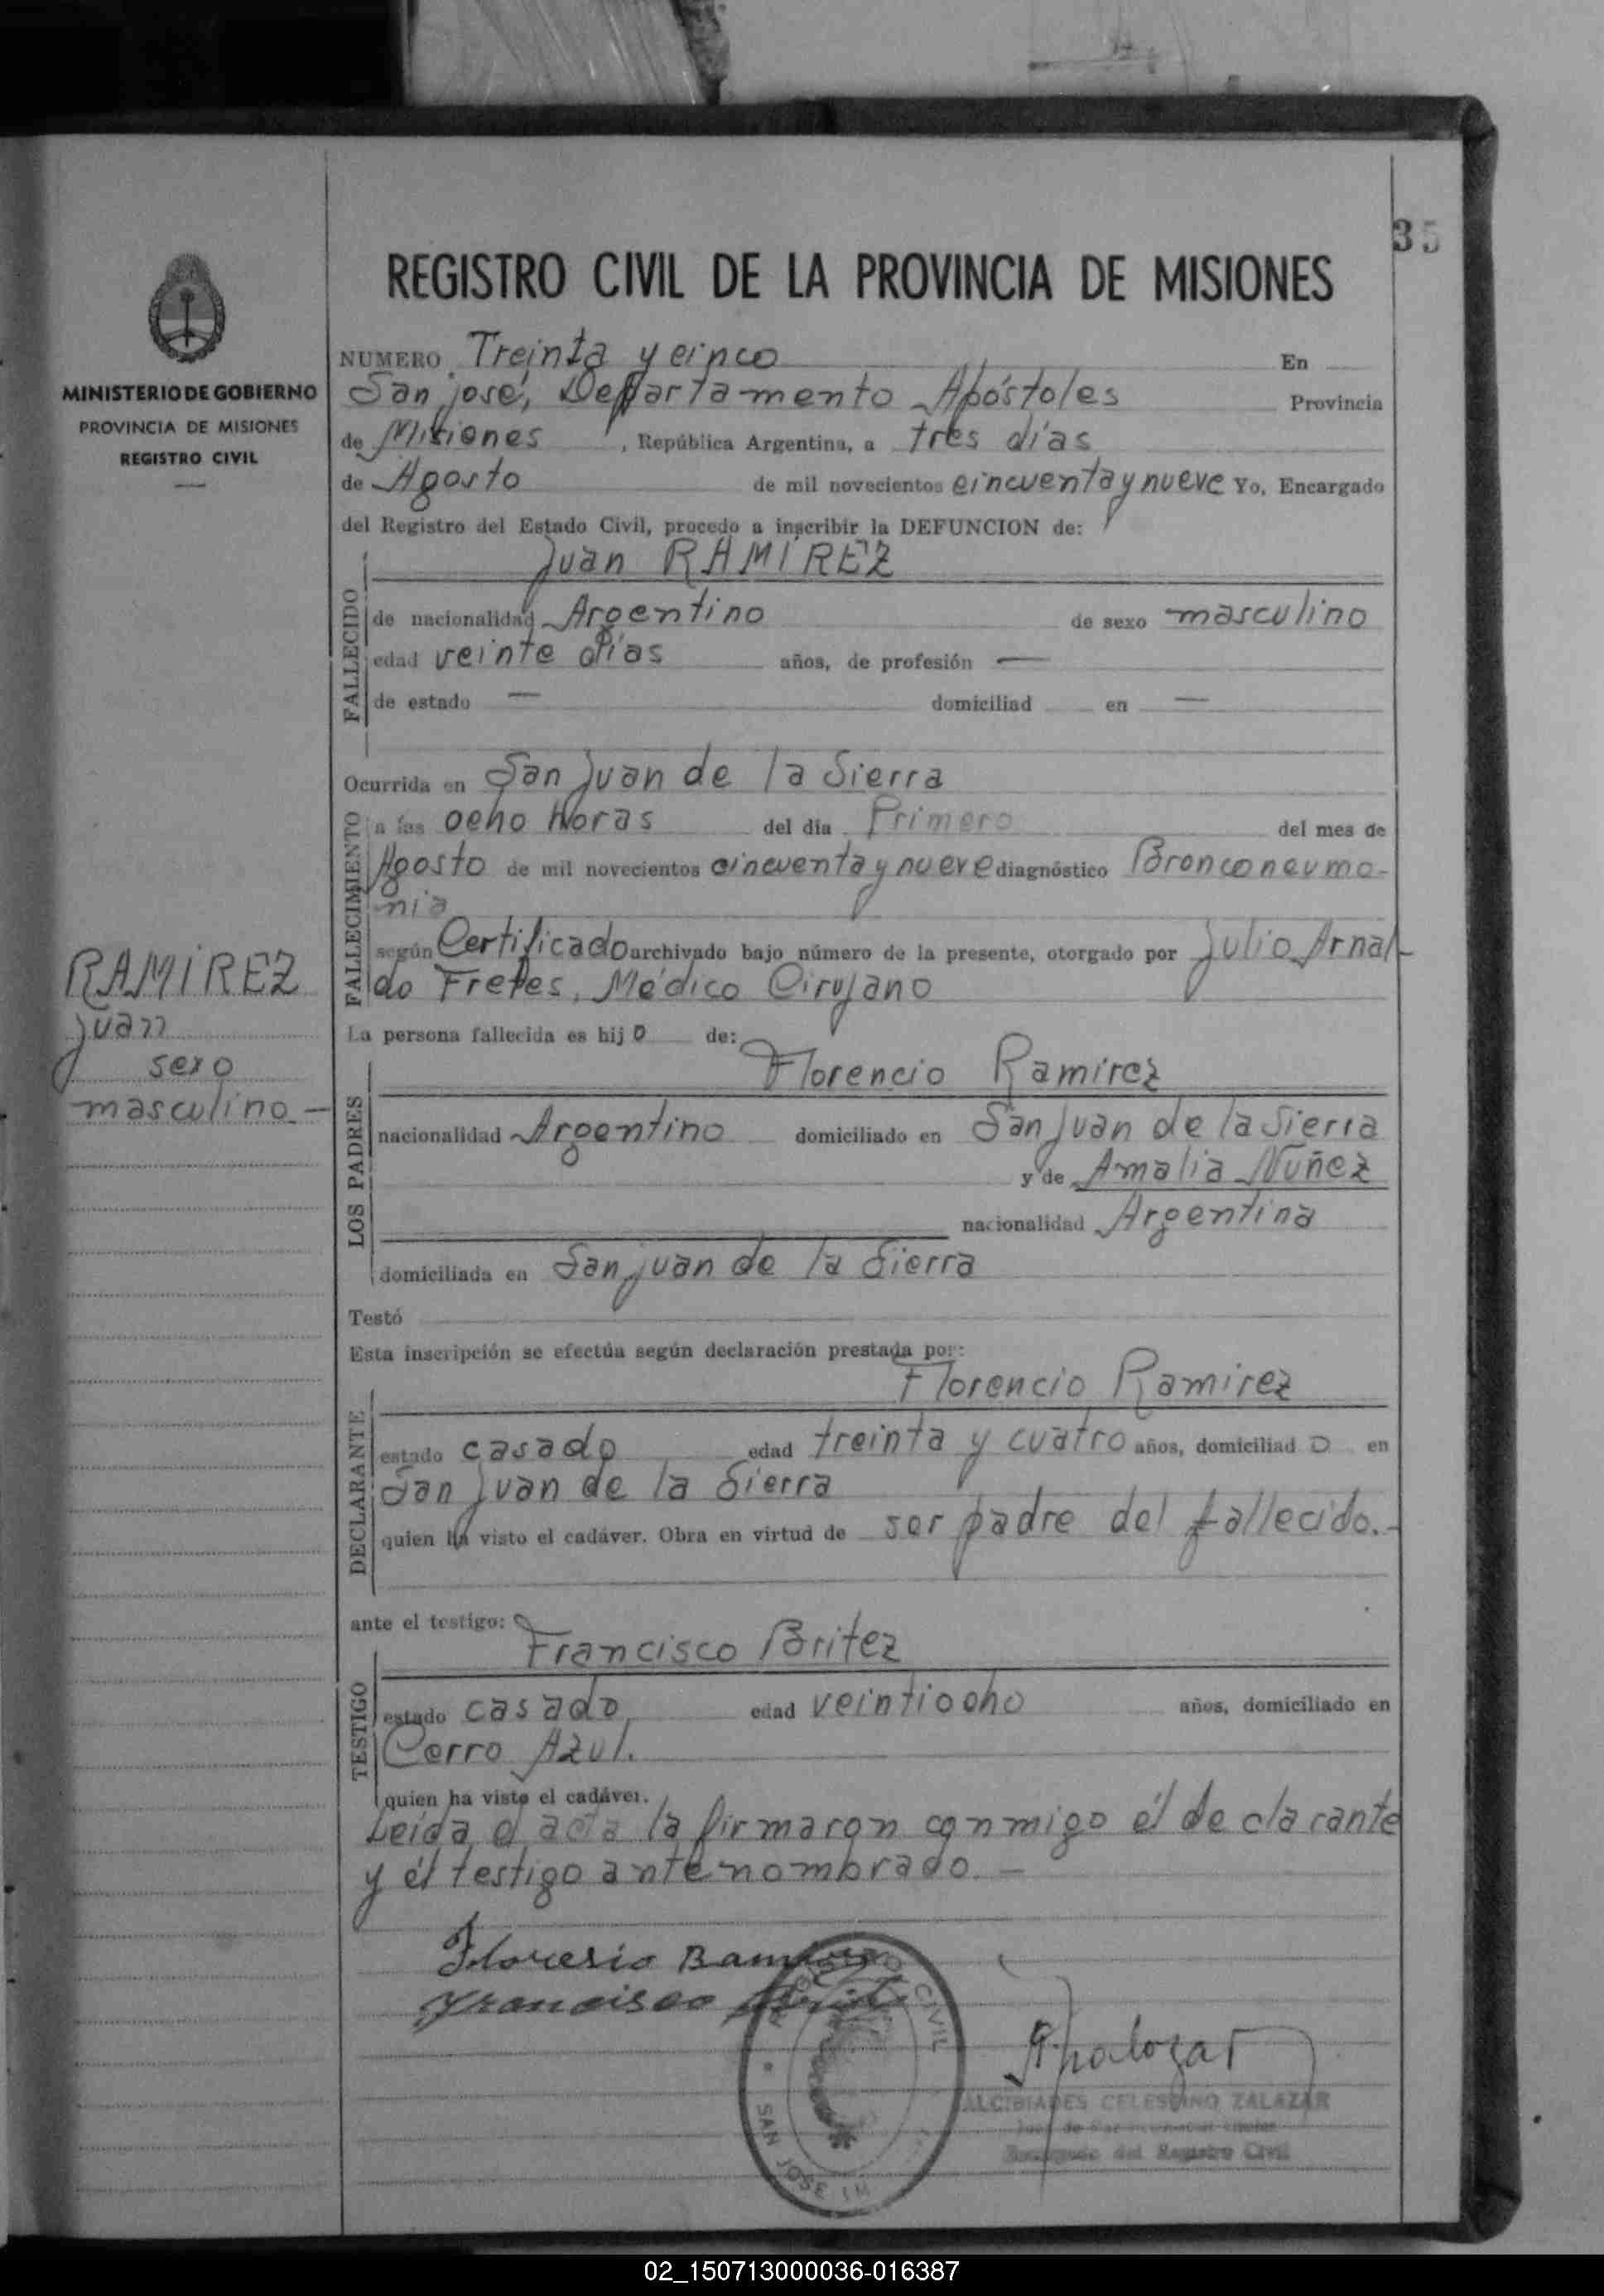 35
REGISTRO CIVIL DE LA PROVINCIA DE MISIONES
MINISTERIO DE GOBIERNO
PROVINCIA DE MISIONES
REGISTRO CIVIL
NUMERO Treinta y cinco En
San José, Departamento Apóstoles Provincia
de Misiones, República Argentina, a tres días
de Agosto de mil novecientos cincuenta y nueve Yo, Encargado
del Registro del Estado Civil, procedo a inscribir la DEFUNCION de:
Juan RAMÍREZ
FALLECIDO
de nacionalidad Argentino de sexo masculino
edad veinte días años, de profesión —
de estado — domiciliad en —
Ocurrida en San Juan de la Sierra
FALLECIMIENTO
a las ocho horas del día Primero del mes de
Agosto de mil novecientos cincuenta y nueve diagnóstico Bronconeumo-
nia
según Certificado archivado bajo número de la presente, otorgado por Julio Arnal-
do Fretes, Médico Cirujano
RAMIREZ
Juan
sexo
masculino.-
La persona fallecida es hijo de:
Florencio Ramírez
LOS PADRES
nacionalidad Argentino domiciliado en San Juan de la Sierra
y de Amalia Nuñez
nacionalidad Argentina
domiciliada en San Juan de la Sierra
Testó
Esta inscripción se efectúa según declaración prestada por:
Florencio Ramirez
DECLARANTE
estado casado edad treinta y cuatro años, domiciliado en
San Juan de la Sierra
quien ha visto el cadáver. Obra en virtud de ser padre del fallecido.-
ante el testigo:
Francisco Britez
TESTIGO
estado casado edad veintiocho años, domiciliado en
Cerro Azul.
quien ha visto el cadáver.
Leída el acta la firmaron conmigo él declarante
y él testigo antenombrado.—
Florencio Ramirez
Francisco Britez
REGISTRO CIVIL
SAN JOSE
ALCIBIADES CELESTINO ZALAZAR
Juez de Paz
Encargado del Registro Civil
02_150713000036-016387